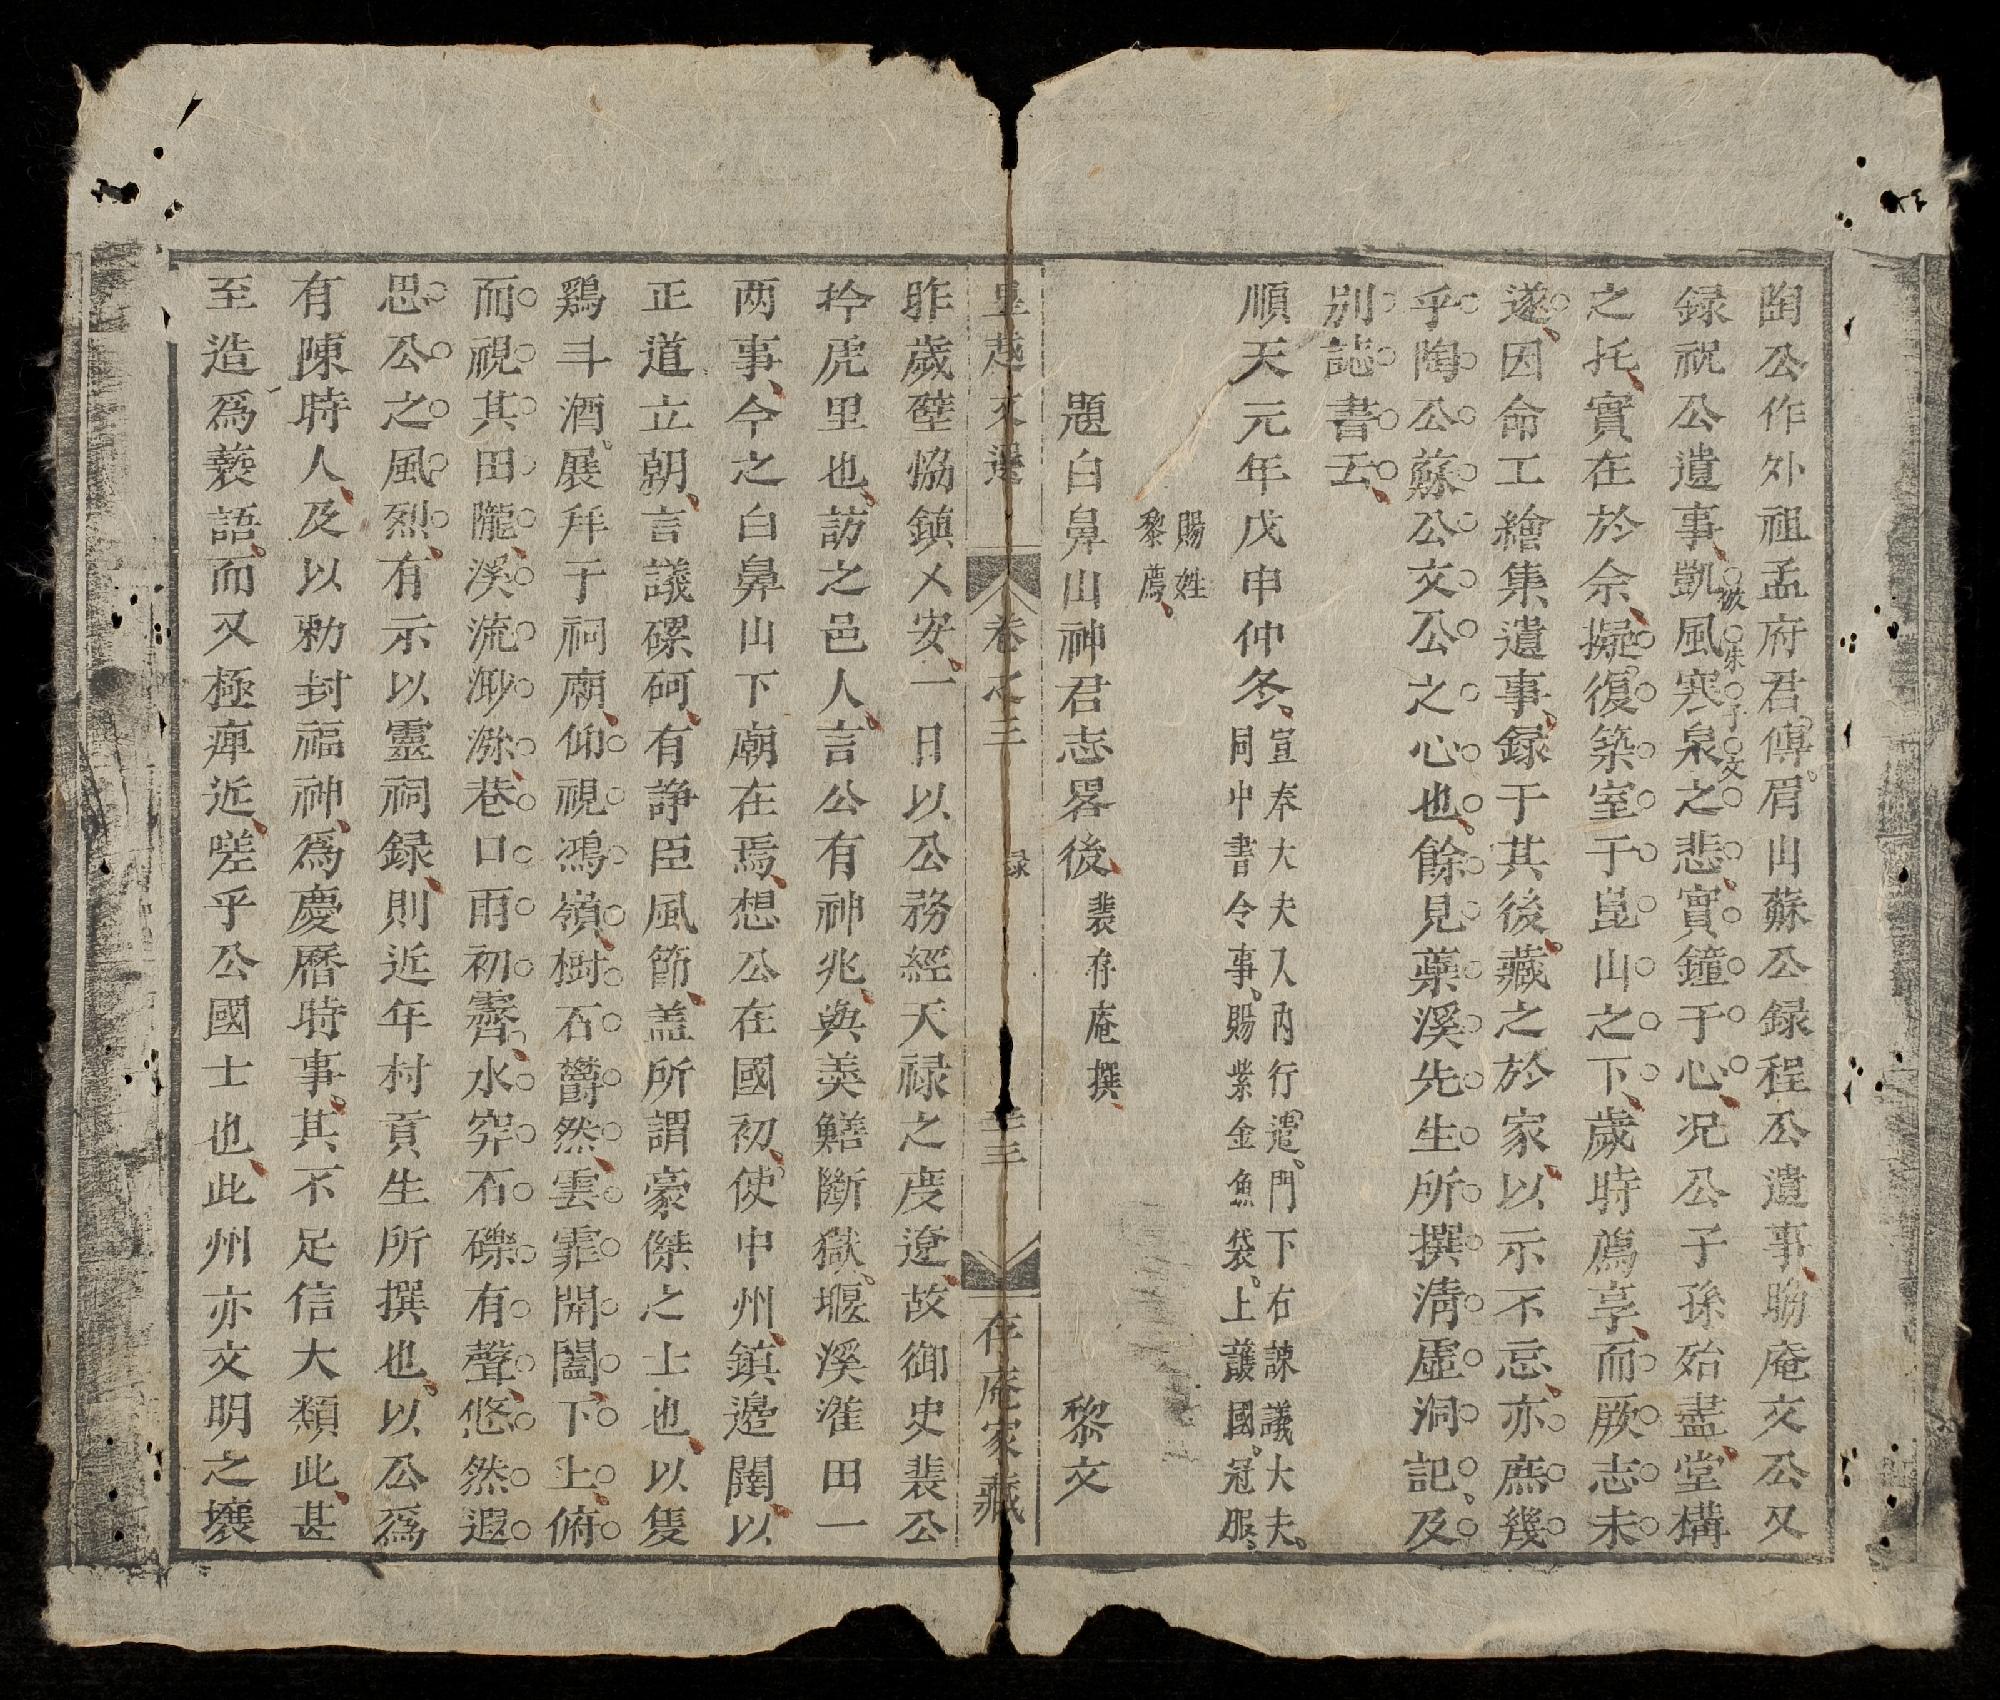 陶公作外祖孟府君傳眉山蘇公録程公遺事聃庵文公又
録祝公遺事凱風寒泉之悲實鐘于心况公子孫殆盡堂構
之托實在於余擬復築室于崑山之下歲時薦享而厥志未
遂因命工繪集遺事録于其後藏之於家以示不忘亦庶幾
乎陶公蘇公文公之心也餘見蘂溪先生所撰清虛洞記及
別誌書云
順天元年戊申仲冬宣奉大夫入內行遣門下右諫議大夫
同中書令事賜紫金魚袋上護國冠服
賜姓
黎薦
題白鼻山神君志畧後裴存庵撰 黎文
皇越文選 卷之三 録 存庵家藏
昨歲壁恊鎮乂安一日以公務經天禄之度遼故御史裴公
拎虎里也訪之邑人言公有神兆與羮鱔斷獄堰溪淮田一
两事今之白鼻山下廟在焉想公在國初使中州鎮邊閫以
正道立朝言議磥砢有諍臣風節盖所謂豪傑之士也以隻
鷄斗酒展拜于祠廟仰視鴻嶺樹石欝然雲霏開闔下上俯
而視其田隴溪流渺㳽巷口雨初霽水穿石礫有聲悠然遐
思公之風烈有示以靈祠録則近年村貢生所撰也以公爲
有陳時人及以勅封福神爲慶曆時事其不足信大類此甚
至造爲䙝語而又極痺近嗟乎公國士也此州亦文明之壤